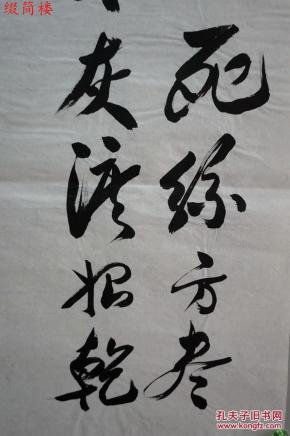 缀简楼
死丝方尽
灰泪始乾
孔夫子旧书网
www.kongfz.com